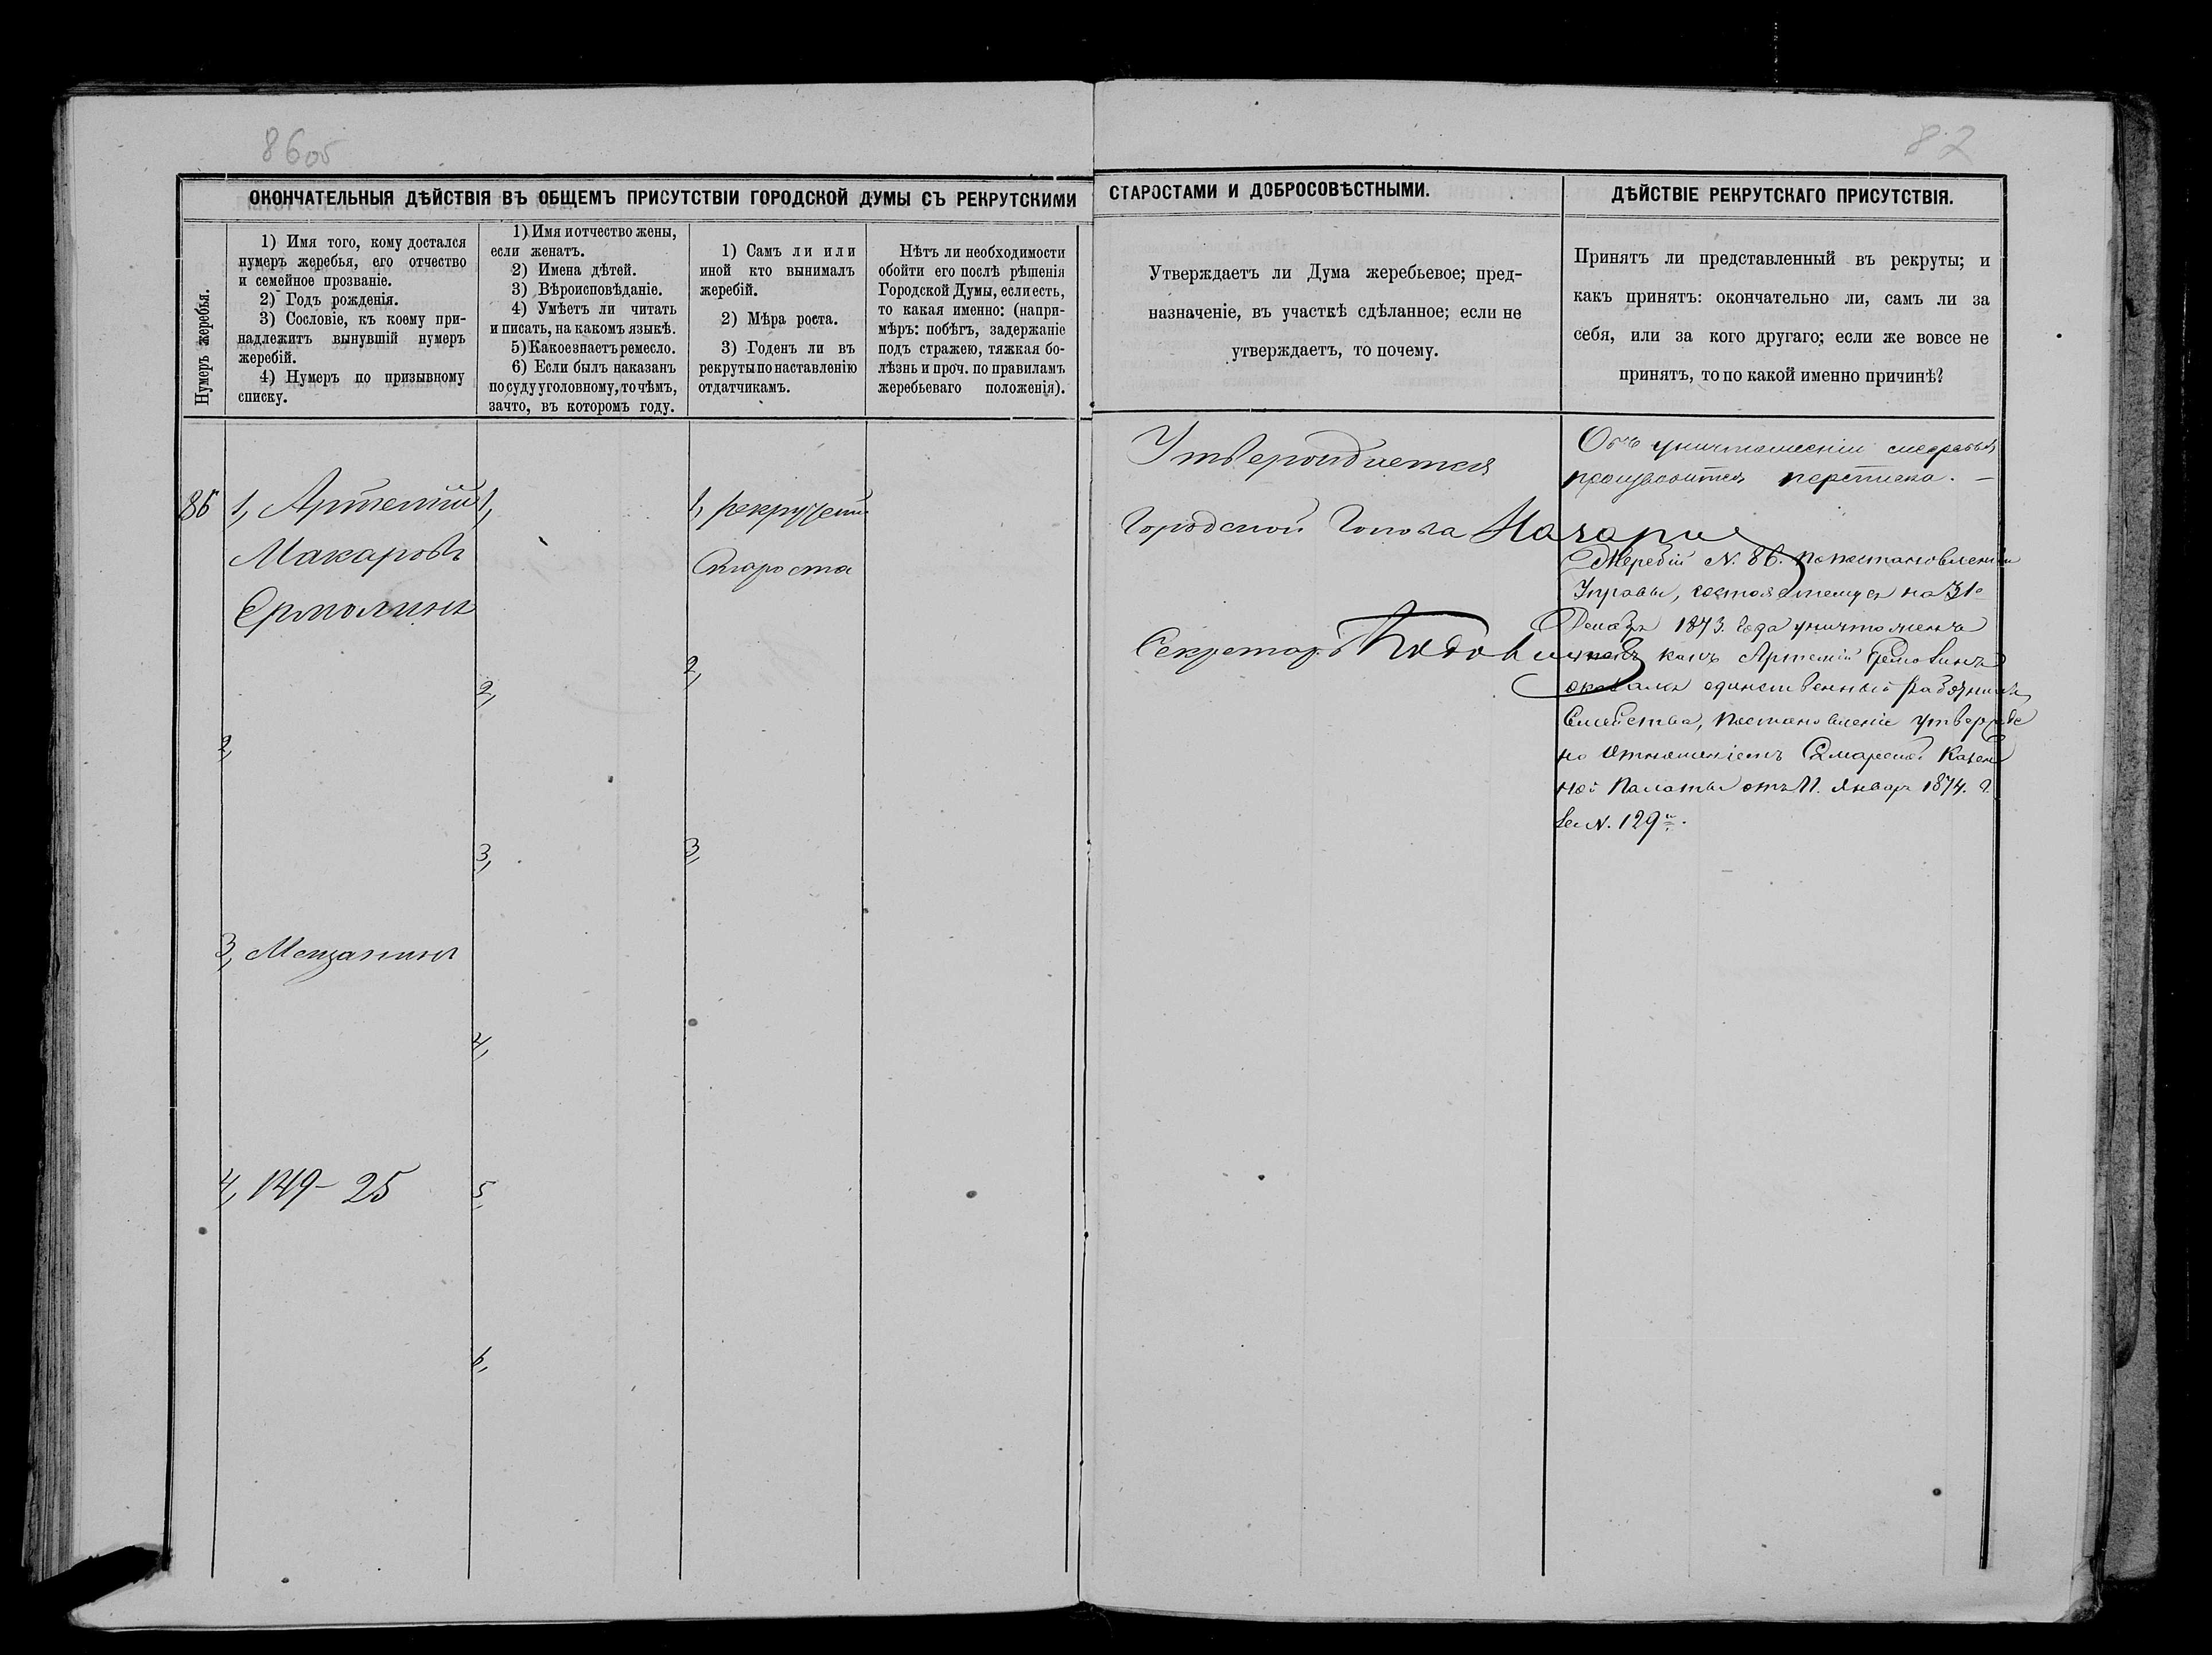 86об
82
ОКОНЧАТЕЛЬНЫЯ ДѢЙСТВІЯ ВЪ ОБЩЕМЪ ПРИСУТСТВІИ ГОРОДСКОЙ ДУМЫ СЪ РЕКРУТСКИМИ
СТАРОСТАМИ И ДОБРОСОВѢСТНЫМИ.
ДѢЙСТВІЕ РЕКРУТСКАГО ПРИСУТСТВІЯ.
Нумеръ жеребья.
1) Имя того, кому достался
нумеръ жеребья, его отчество
и семейное прозваніе.
2) Годъ рожденія.
3) Сословіе, къ коему при-
надлежитъ вынувшій нумеръ
жеребій.
4) Нумеръ по призывному
списку.
1) Имя и отчество жены,
если женатъ.
2) Имена дѣтей.
3) Вѣроисповѣданіе.
4) Умѣетъ ли читать
и писать, на какомъ языкѣ.
5) Какое знаетъ ремесло.
6) Если былъ наказанъ
по суду уголовному, то чѣмъ,
за что, въ которомъ году.
1) Самъ ли или
иной кто вынималъ
жеребій.
2) Мѣра роста.
3) Годенъ ли въ
рекруты по наставленію
отдатчикамъ.
Нѣтъ ли необходимости
обойти его послѣ рѣшенія
Городской Думы, если есть,
то какая именно: (напри-
мѣръ: побѣгъ, задержаніе
подъ стражею, тяжкая бо-
лѣзнь и проч. по правиламъ
жеребьеваго положенія).
Утверждаетъ ли Дума жеребьевое; пред-
назначеніе, въ участкѣ сдѣланное; если не
утверждаетъ, то почему.
Принятъ ли представленный въ рекруты; и
какъ принятъ: окончательно ли, самъ ли за
себя, или за кого другаго; если же вовсе не
принятъ, то по какой именно причинѣ?
86
1, Артемій
Макаровъ
Ермолинъ
2,
3, Мещанинъ
4, 149 – 25
1,
2,
3,
4,
5,
6,
1, рекрутскій
Староста
2,
3,
Утверждается
Городской Голова
Секретарь
Объ уничтоженіи жеребья
производится переписка. –
Жеребій N. 86. по постановленію
Управы, состоявшемуся на 31е
Декабр 1873. года уничтоженъ
такъ какъ Артемій Ермолинъ
оказался единственный работникъ
Семейства, постановленіе утвержде
но отношеніемъ Самарской Казен
ной Палаты отъ 11. Январ 1874. г.
за N. 129м.